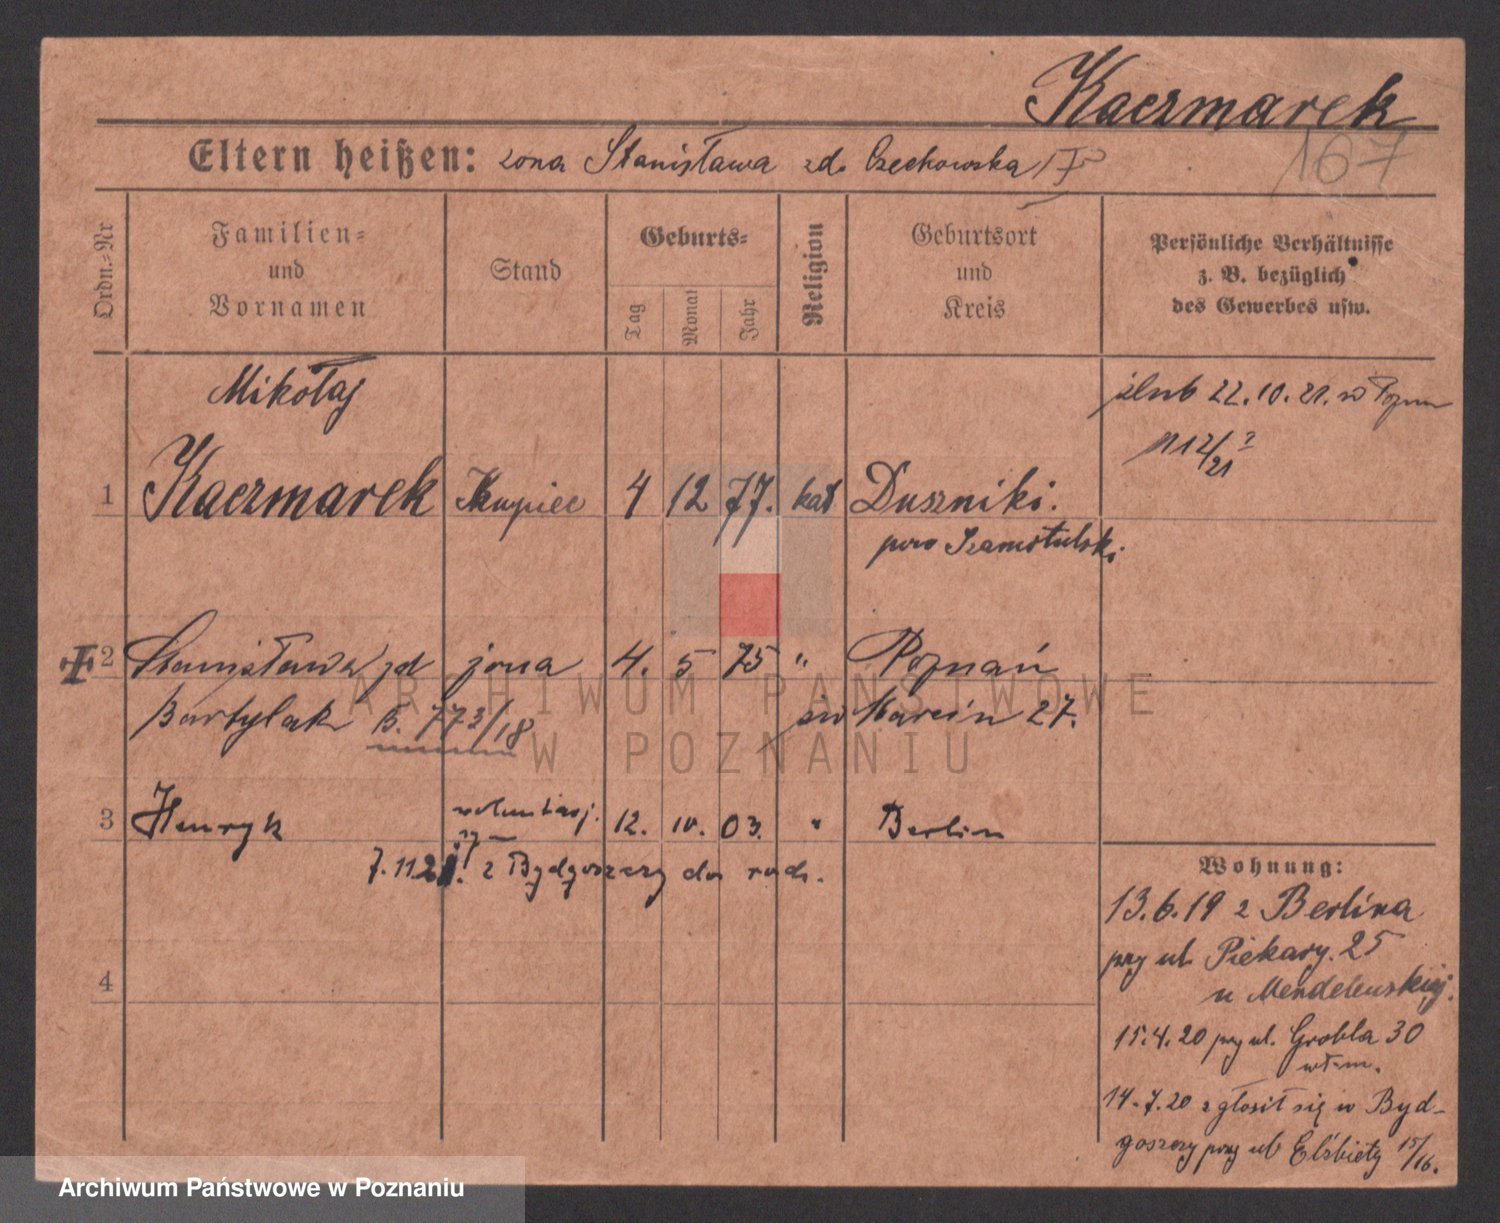 Kaczmarek
167
Eltern heißen: żona Stanisława zd. Czechowska
Ordn.-Nr
Familien-
und
Vornamen
Stand
Geburts-
Tag
Monat
Jahr
Religion
Geburtsort
und
Kreis
Persönliche Verhältnisse
z. B. bezüglich
des Gewerbes usw.
Mikołaj
1 Kaczmarek Kupiec 4 12 77. kat Duszniki.
pow Szamotulski
ślub 22.10.21. w Pozn
2 Stanisława zd żona 4. 5 75 " Poznań
Bartylak B. 773/18 św Marcin 27.
3 Henryk 12. 10. 03. " Berlin
z Bydgoszczy do rodz.
4
Wohnung:
13.6.19 z Berlina
przy ul. Piekary. 25
u
15.4.20 przy ul. Grobla 30
własn.
14.7.20 zgłosił się w Byd-
goszczy przy ul Elżbiety 15/16.
ARCHIWUM PAŃSTWOWE
W POZNANIU
Archiwum Państwowe w Poznaniu